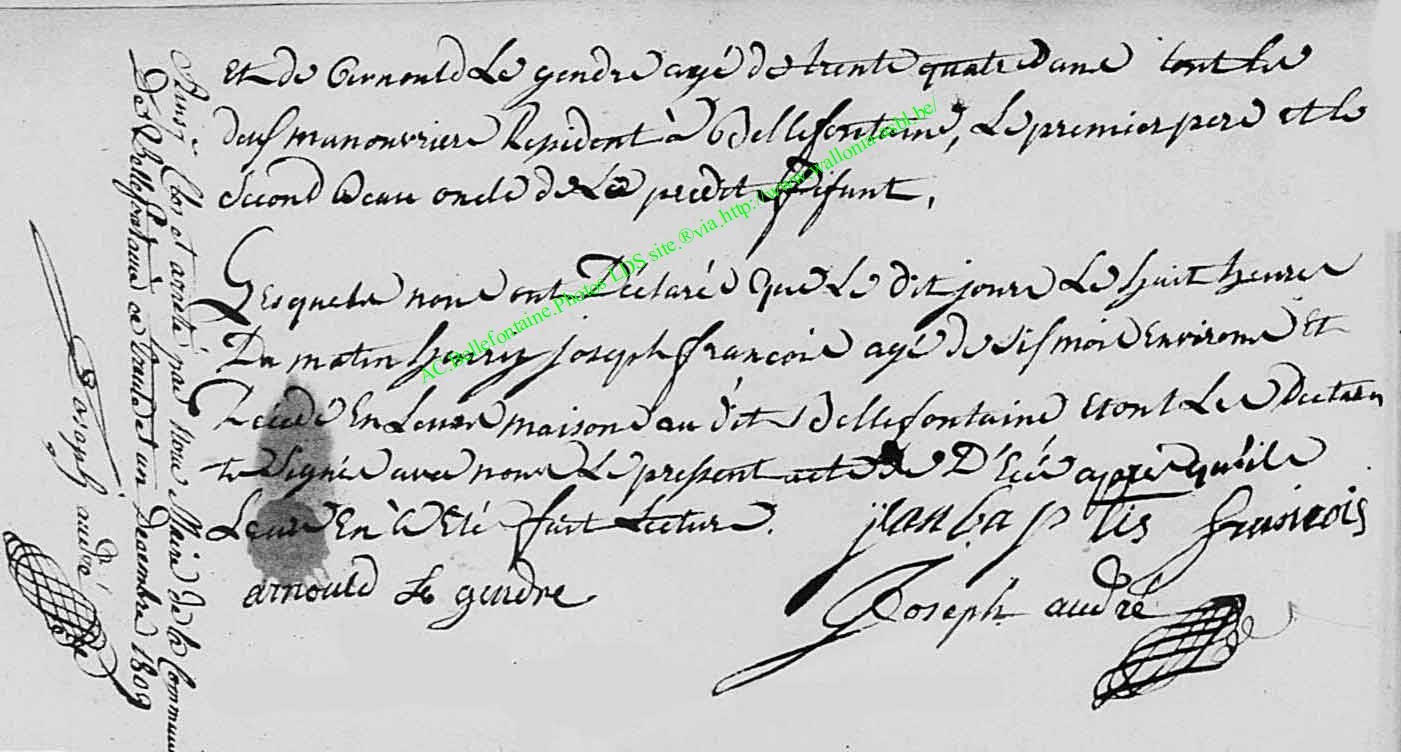 Et de Arnould Le gendre agé de trente quatre ans tout Les
deux manouvriers Resident à Bellefontaine, Le premier pere et le
Second Beau oncle de Le predit defunt,
Lesquels nous ont Déclaré que Le dit jour Le huit heures
Du matin henry joseph françois agé de six mois Environs Et
Decédé En Leurs maisons au dit Bellefontaine et ont Les Declaran
ts Signés avec nous Le pressent acte de D'écé apprés qu'ils
Leurs En à Eté fait Lecture.
jean baptis fransois
arnould Le gendre
Joseph andré
Clos et arreté par Nous Maire de la Commune
De Bellefontaine Le trente et un Decembre 1809
Joseph andré
AC.Bellefontaine.Photos LDS site.®via.http://www.wallonia-asbl.be/